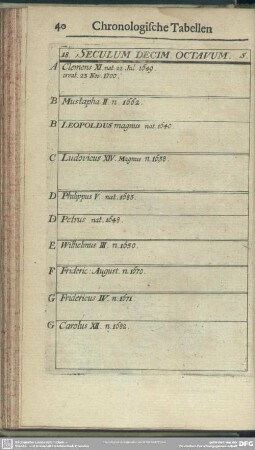 40 Chronologische Tabellen
18 SECULUM DECIM OCTAVUM. S.
A Clemens XI. nat. 22 Jul. 1649
creat. 23 Nov. 1700.
B Mustapha II. n. 1662.
B LEOPOLDUS magnus nat. 1640.
C Ludovicus XIV. Magnus n. 1638.
D Philippus V. nat. 1683.
D Petrus nat.
E Wilhelmus III. n. 1650.
F Frideric. August. n. 1670.
G Fridericus IV. n. 1671.
G Carolus XII. n. 1682.